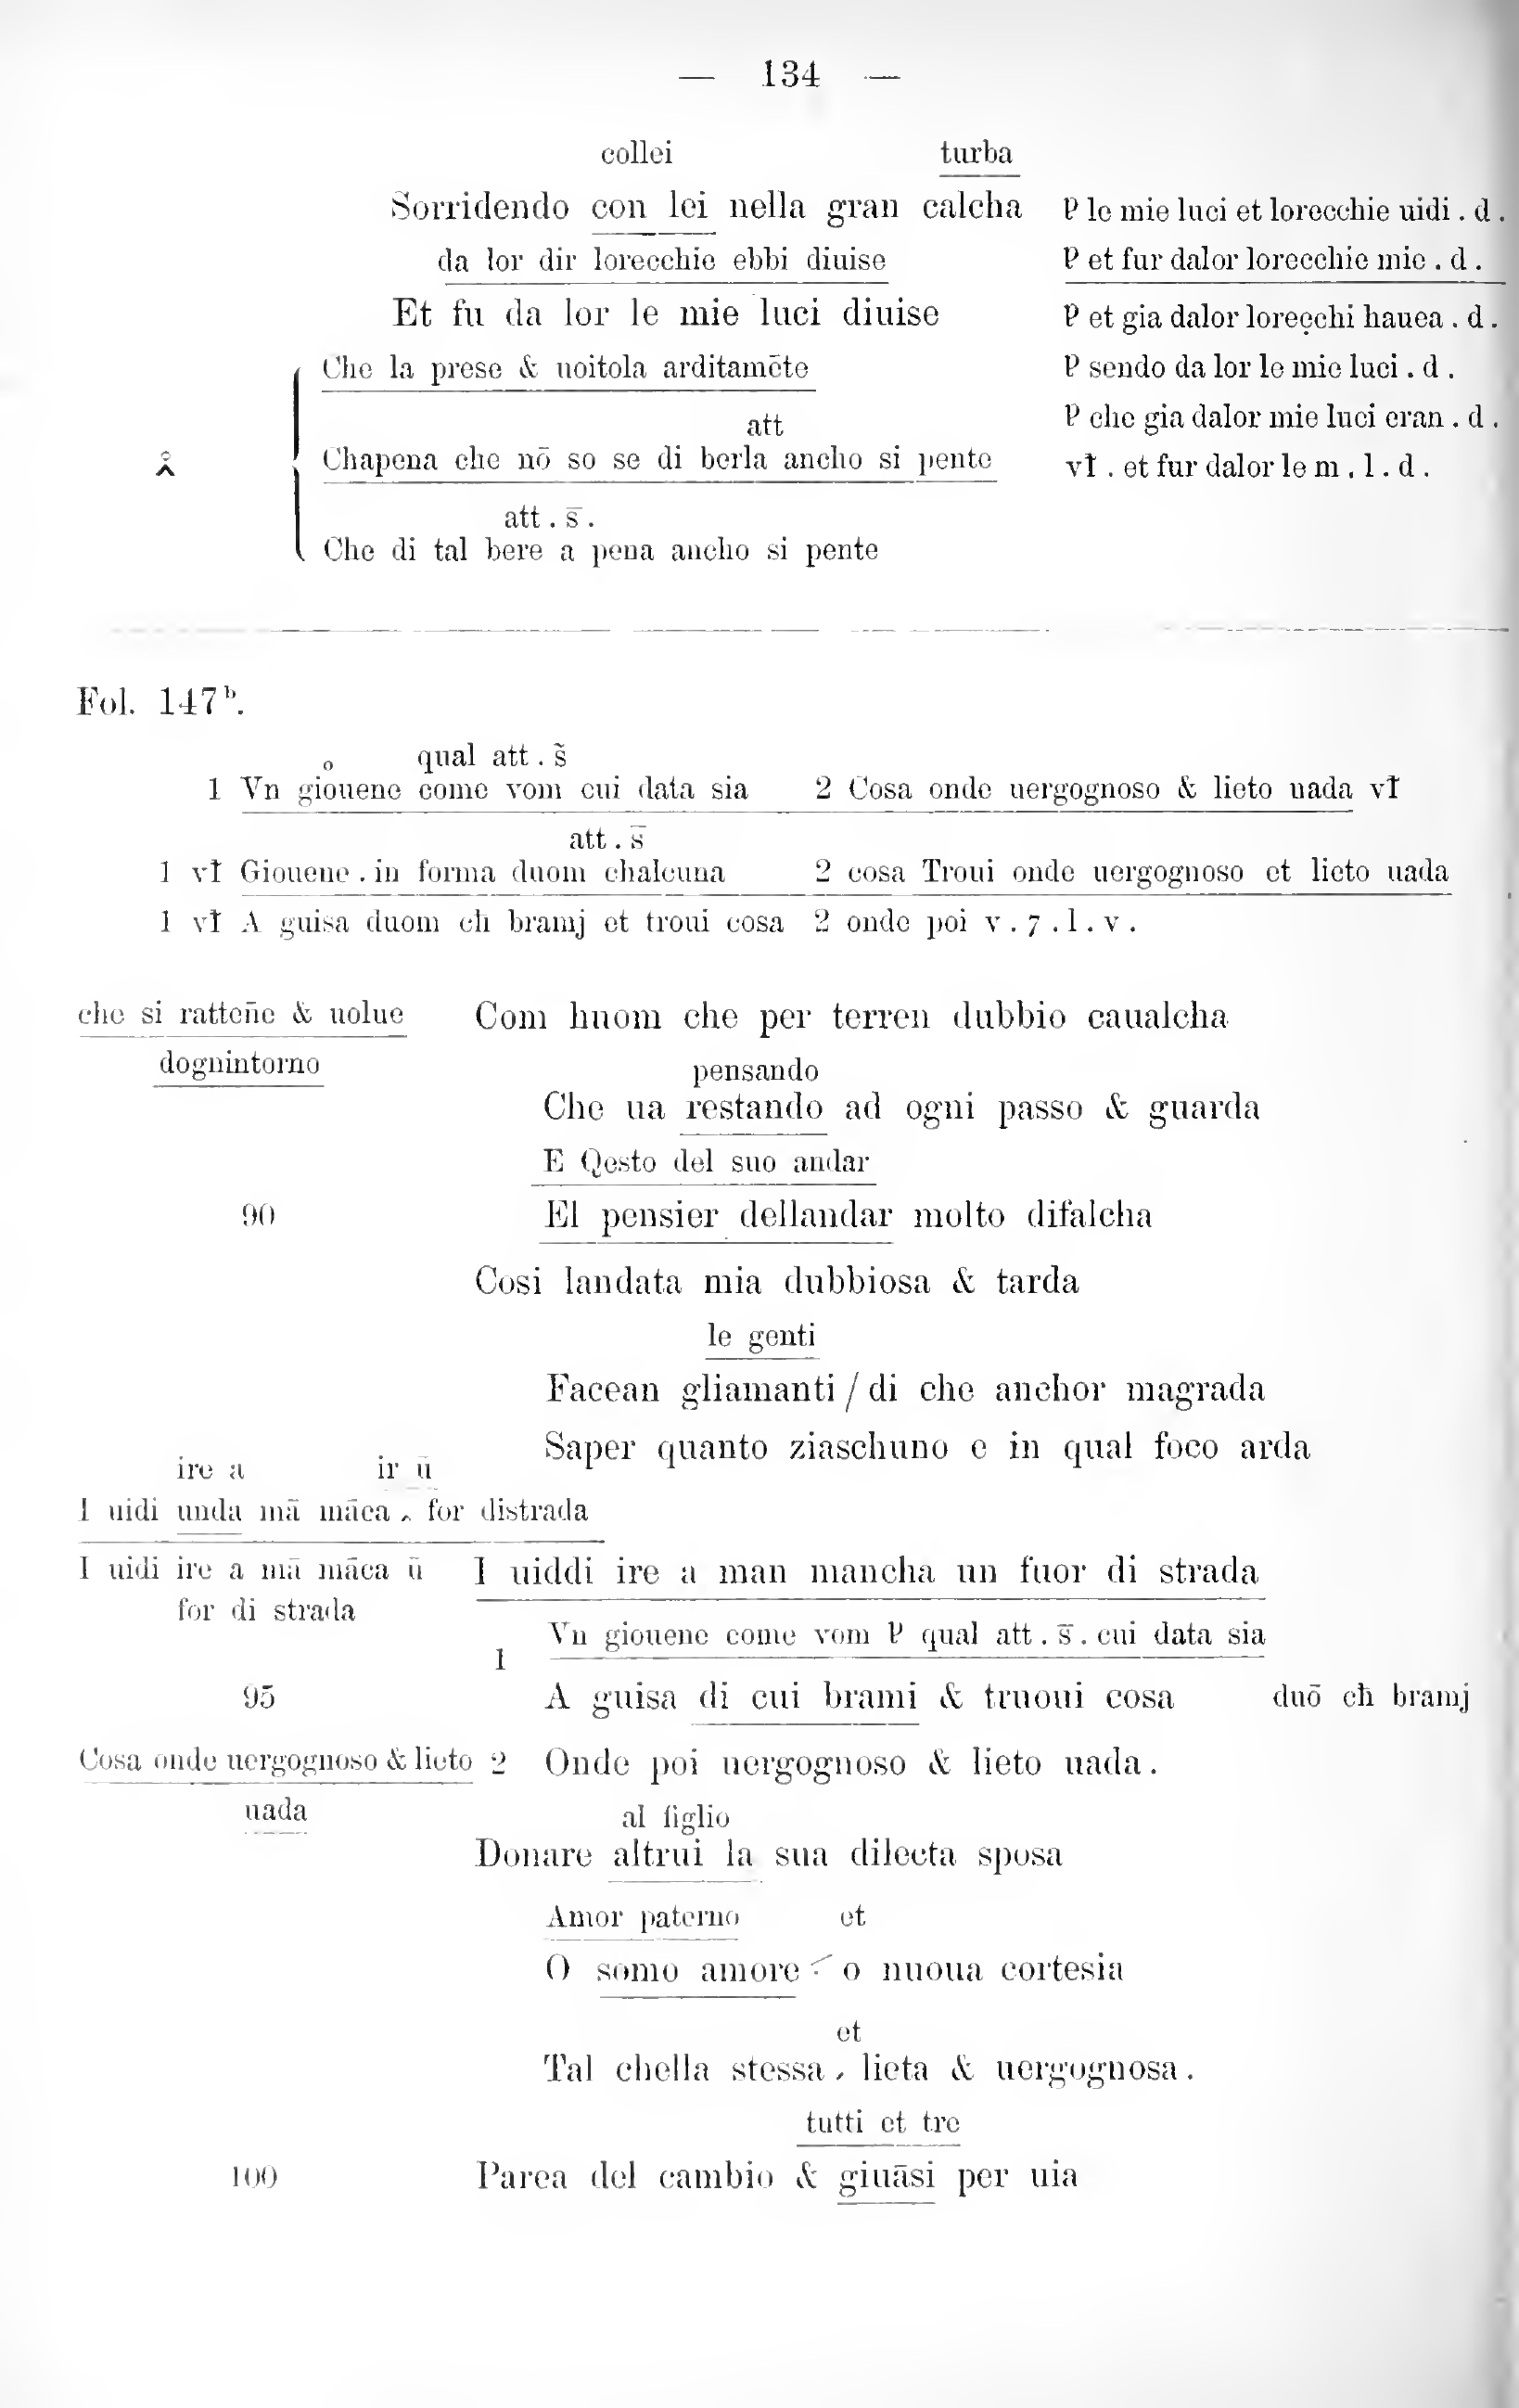 — 134 —
collei turba
Sorridendo con lei nella gran calcha
P le mie luci et lorecchie uidi . d .
da lor dir lorecchie ebbi diuise
P et fur dalor lorecchie mie . d .
Et fu da lor le mie luci diuise
P et gia dalor lorecchi hauea . d .
Che la prese & uoitola arditamēte
P sendo da lor le mie luci . d .
att
P che gia dalor mie luci eran . d .
Chapena che nō so se di berla ancho si pente
vƚ . et fur dalor le m . l . d .
att . s̄ .
Che di tal bere a pena ancho si pente
Fol. 147ᵇ.
o qual att . s̃
1 Vn giouene come vom cui data sia 2 Cosa onde uergognoso & lieto uada vƚ
att . s̄
1 vƚ Giouene . in forma duom chalcuna 2 cosa Troui onde uergognoso et lieto uada
1 vƚ A guisa duom cħ bramj et troui cosa 2 onde poi v . 7 . l . v .
che si ratteñe & uolue Com huom che per terren dubbio caualcha
dognintorno
pensando
Che ua restando ad ogni passo & guarda
E Qesto del suo andar
90 El pensier dellandar molto difalcha
Cosi landata mia dubbiosa & tarda
le genti
Facean gliamanti / di che anchor magrada
Saper quanto ziaschuno e in qual foco arda
ire a ir ū
I uidi unda mā māca ‸ for distrada
I uidi ire a mā māca ū I uiddi ire a man mancha un fuor di strada
for di strada
Vn giouene come vom P qual att . s̄ . cui data sia
1
95 A guisa di cui brami & truoui cosa duō cħ bramj
Cosa onde uergognoso & lieto 2 Onde poi uergognoso & lieto uada .
uada
al figlio
Donare altrui la sua dilecta sposa
Amor paterno et
O somo amore o nuoua cortesia
et
Tal chella stessa , lieta & uergognosa .
tutti et tre
100 Parea del cambio & giuāsi per uia